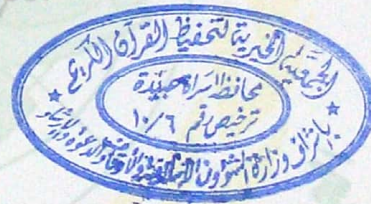 الجمعية الخيرية لتحفيظ القرآن الكريم
محافظ اسراة عبيدة
ترخيص رقم ١٠/٦
بإشراف وزارة الشؤون الإسلامية والأوقاف والدعوة والإرشاد